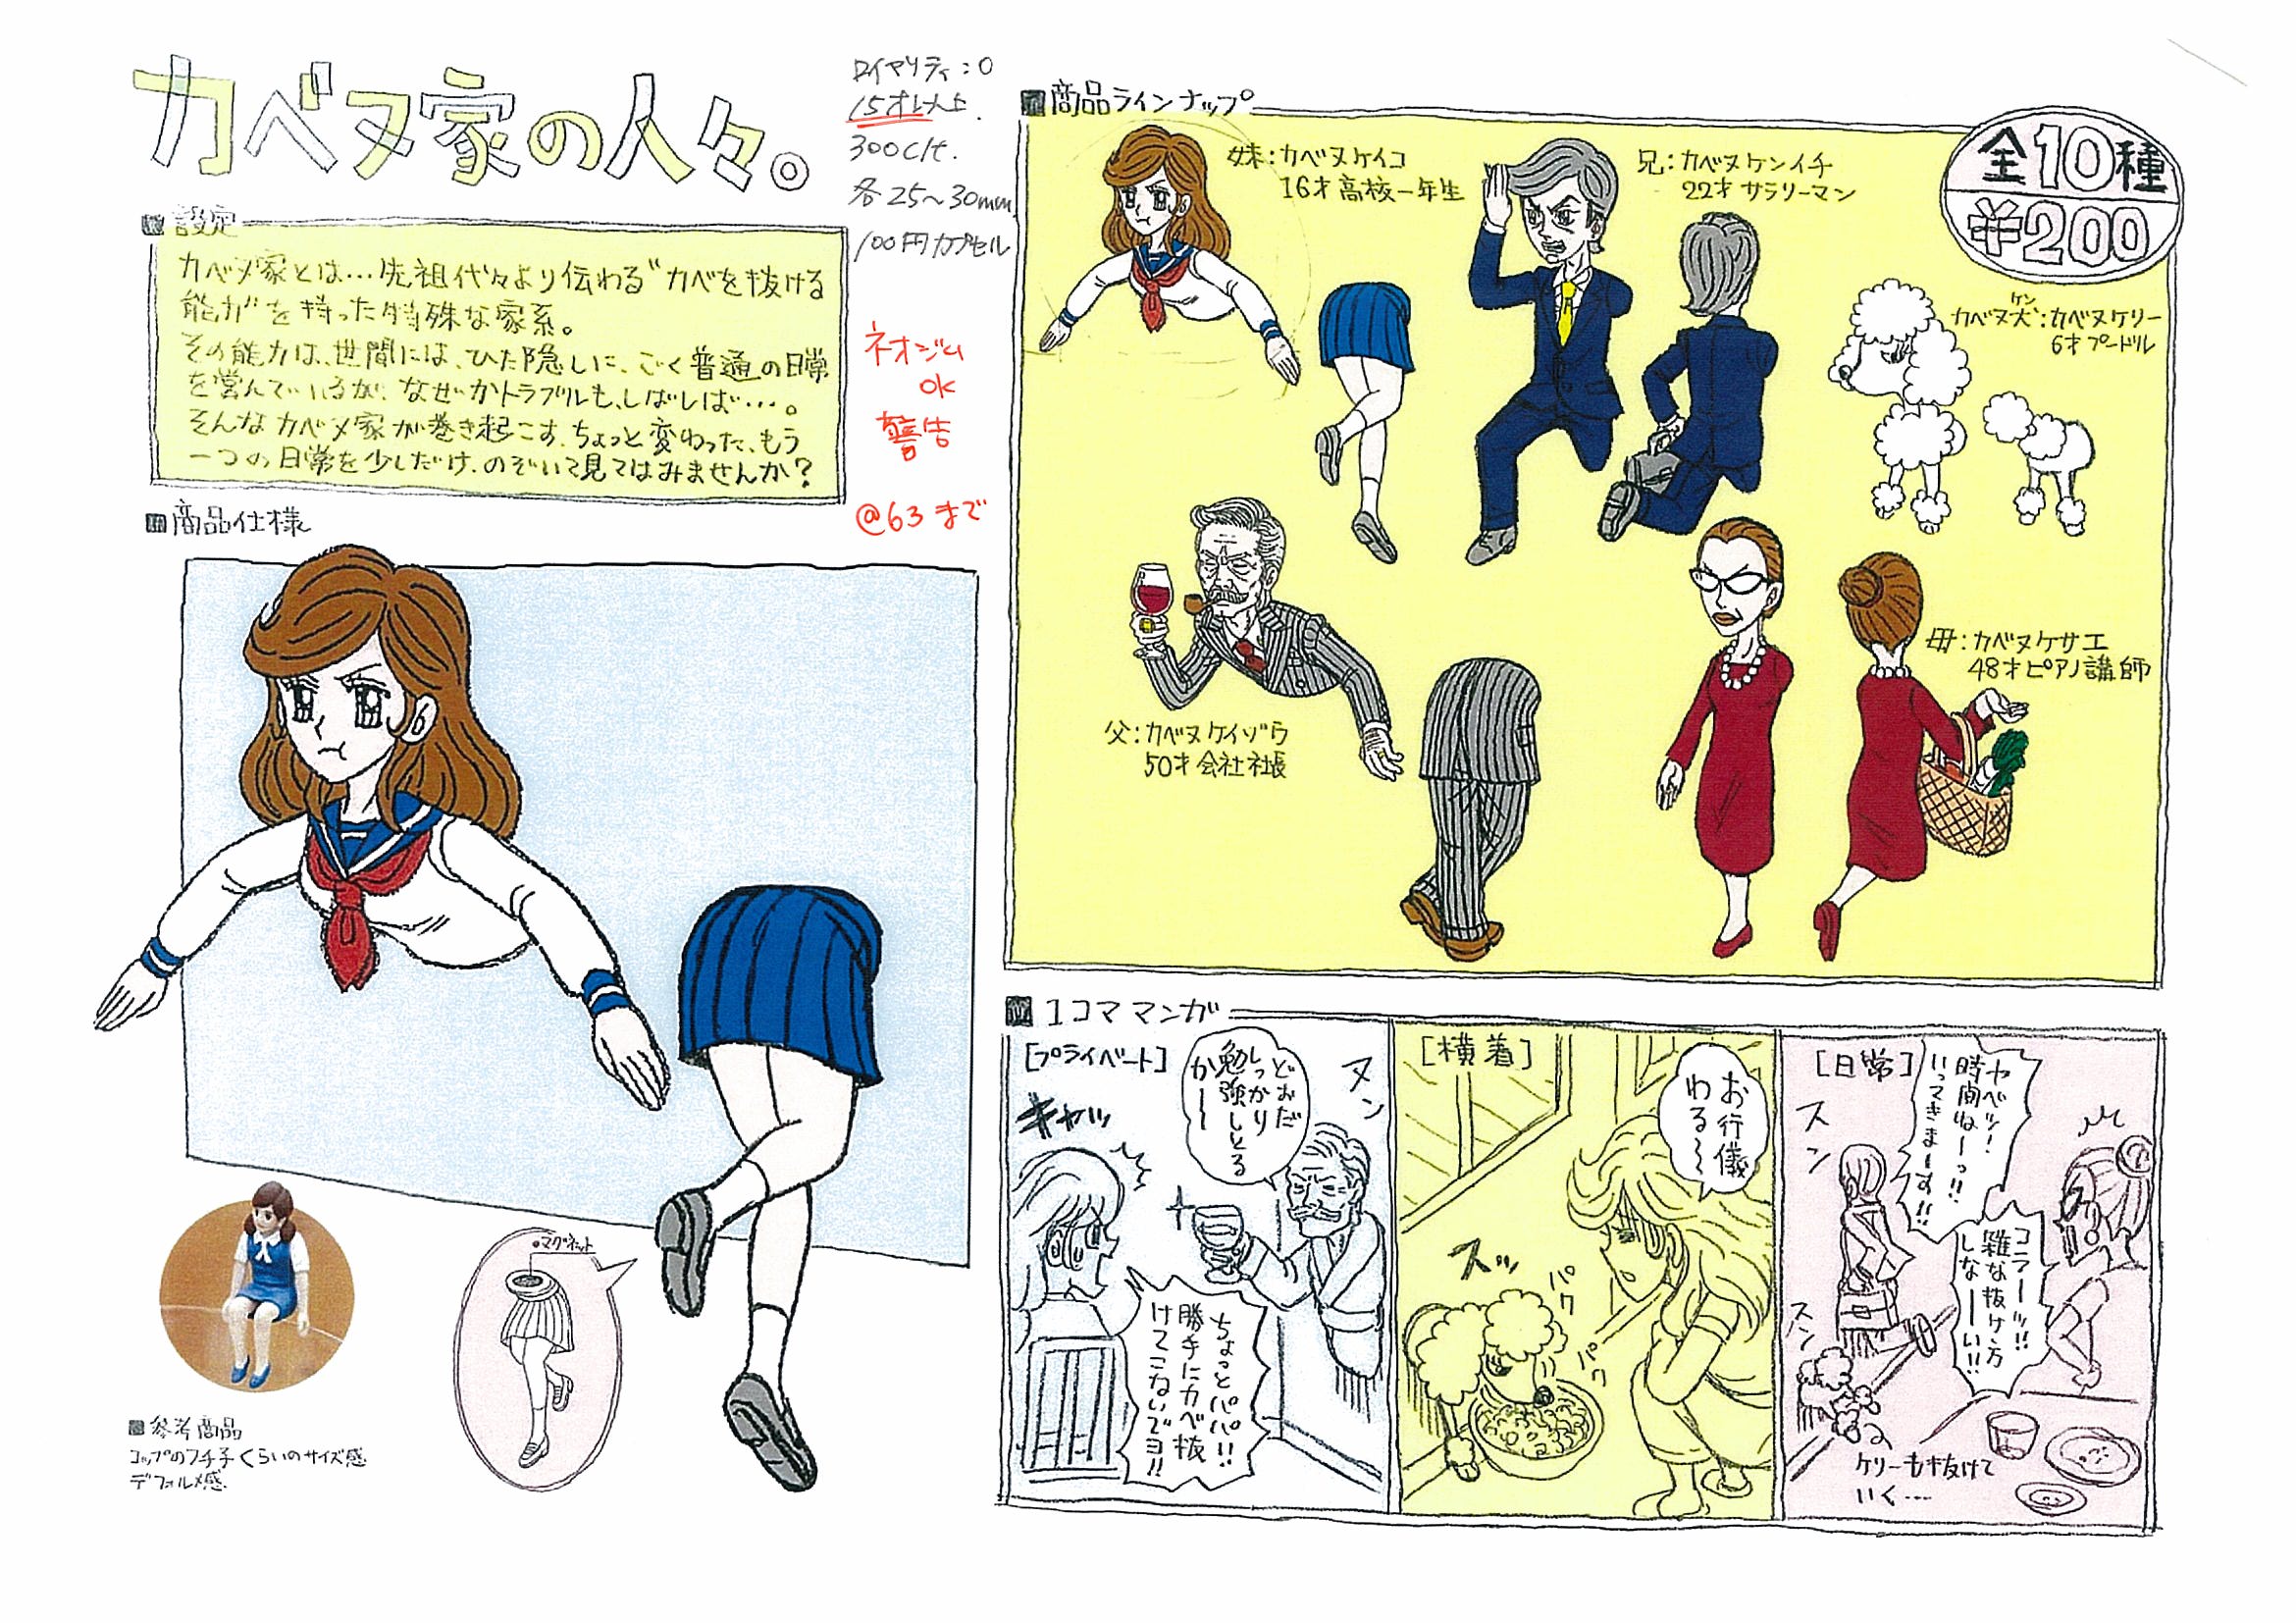 カベヌ家の人々。
ロイヤリティ:0
15才以上.
300c/t.
各25~30mm
100円カプセル
ネオジム
OK
警告
@63まで
■設定
カベヌ家とは…先祖代々より伝わる"カベを抜ける
能力"を持った特殊な家系。
その能力は、世間には、ひた隠しに、ごく普通の日常
を営んでいるが、なぜかトラブルも、しばしば…。
そんなカベヌ家が巻き起こす、ちょっと変わった、もう
一つの日常を少しだけ、のぞいて見てはみませんか?
■商品仕様
•マグネット
■参考商品
コップのフチ子くらいのサイズ感
デフォルメ感
■商品ラインナップ
全10種
¥200
妹:カベヌケイコ
16才高校一年生
兄:カベヌケンイチ
22才サラリーマン
ケン
カベヌ犬:カベヌケリー
6才プードル
父:カベヌケイゾウ
50才会社社長
母:カベヌケサエ
48才ピアノ講師
■1コママンガ
[プライベート]
どおだ
しっかり
勉強しとる
か──
ヌン
キャッ
ちょっとパパ!!
勝手にカベ抜
けてこないでヨ!!
[横着]
お行儀
わる~~
スッ
パク
パク
[日常]
ヤベッ!
時間ねーっ!!
いってきまーす!!
スン
コラーッ!!
雑な抜け方
しな──い!!
スン
ケリーも抜けて
いく….